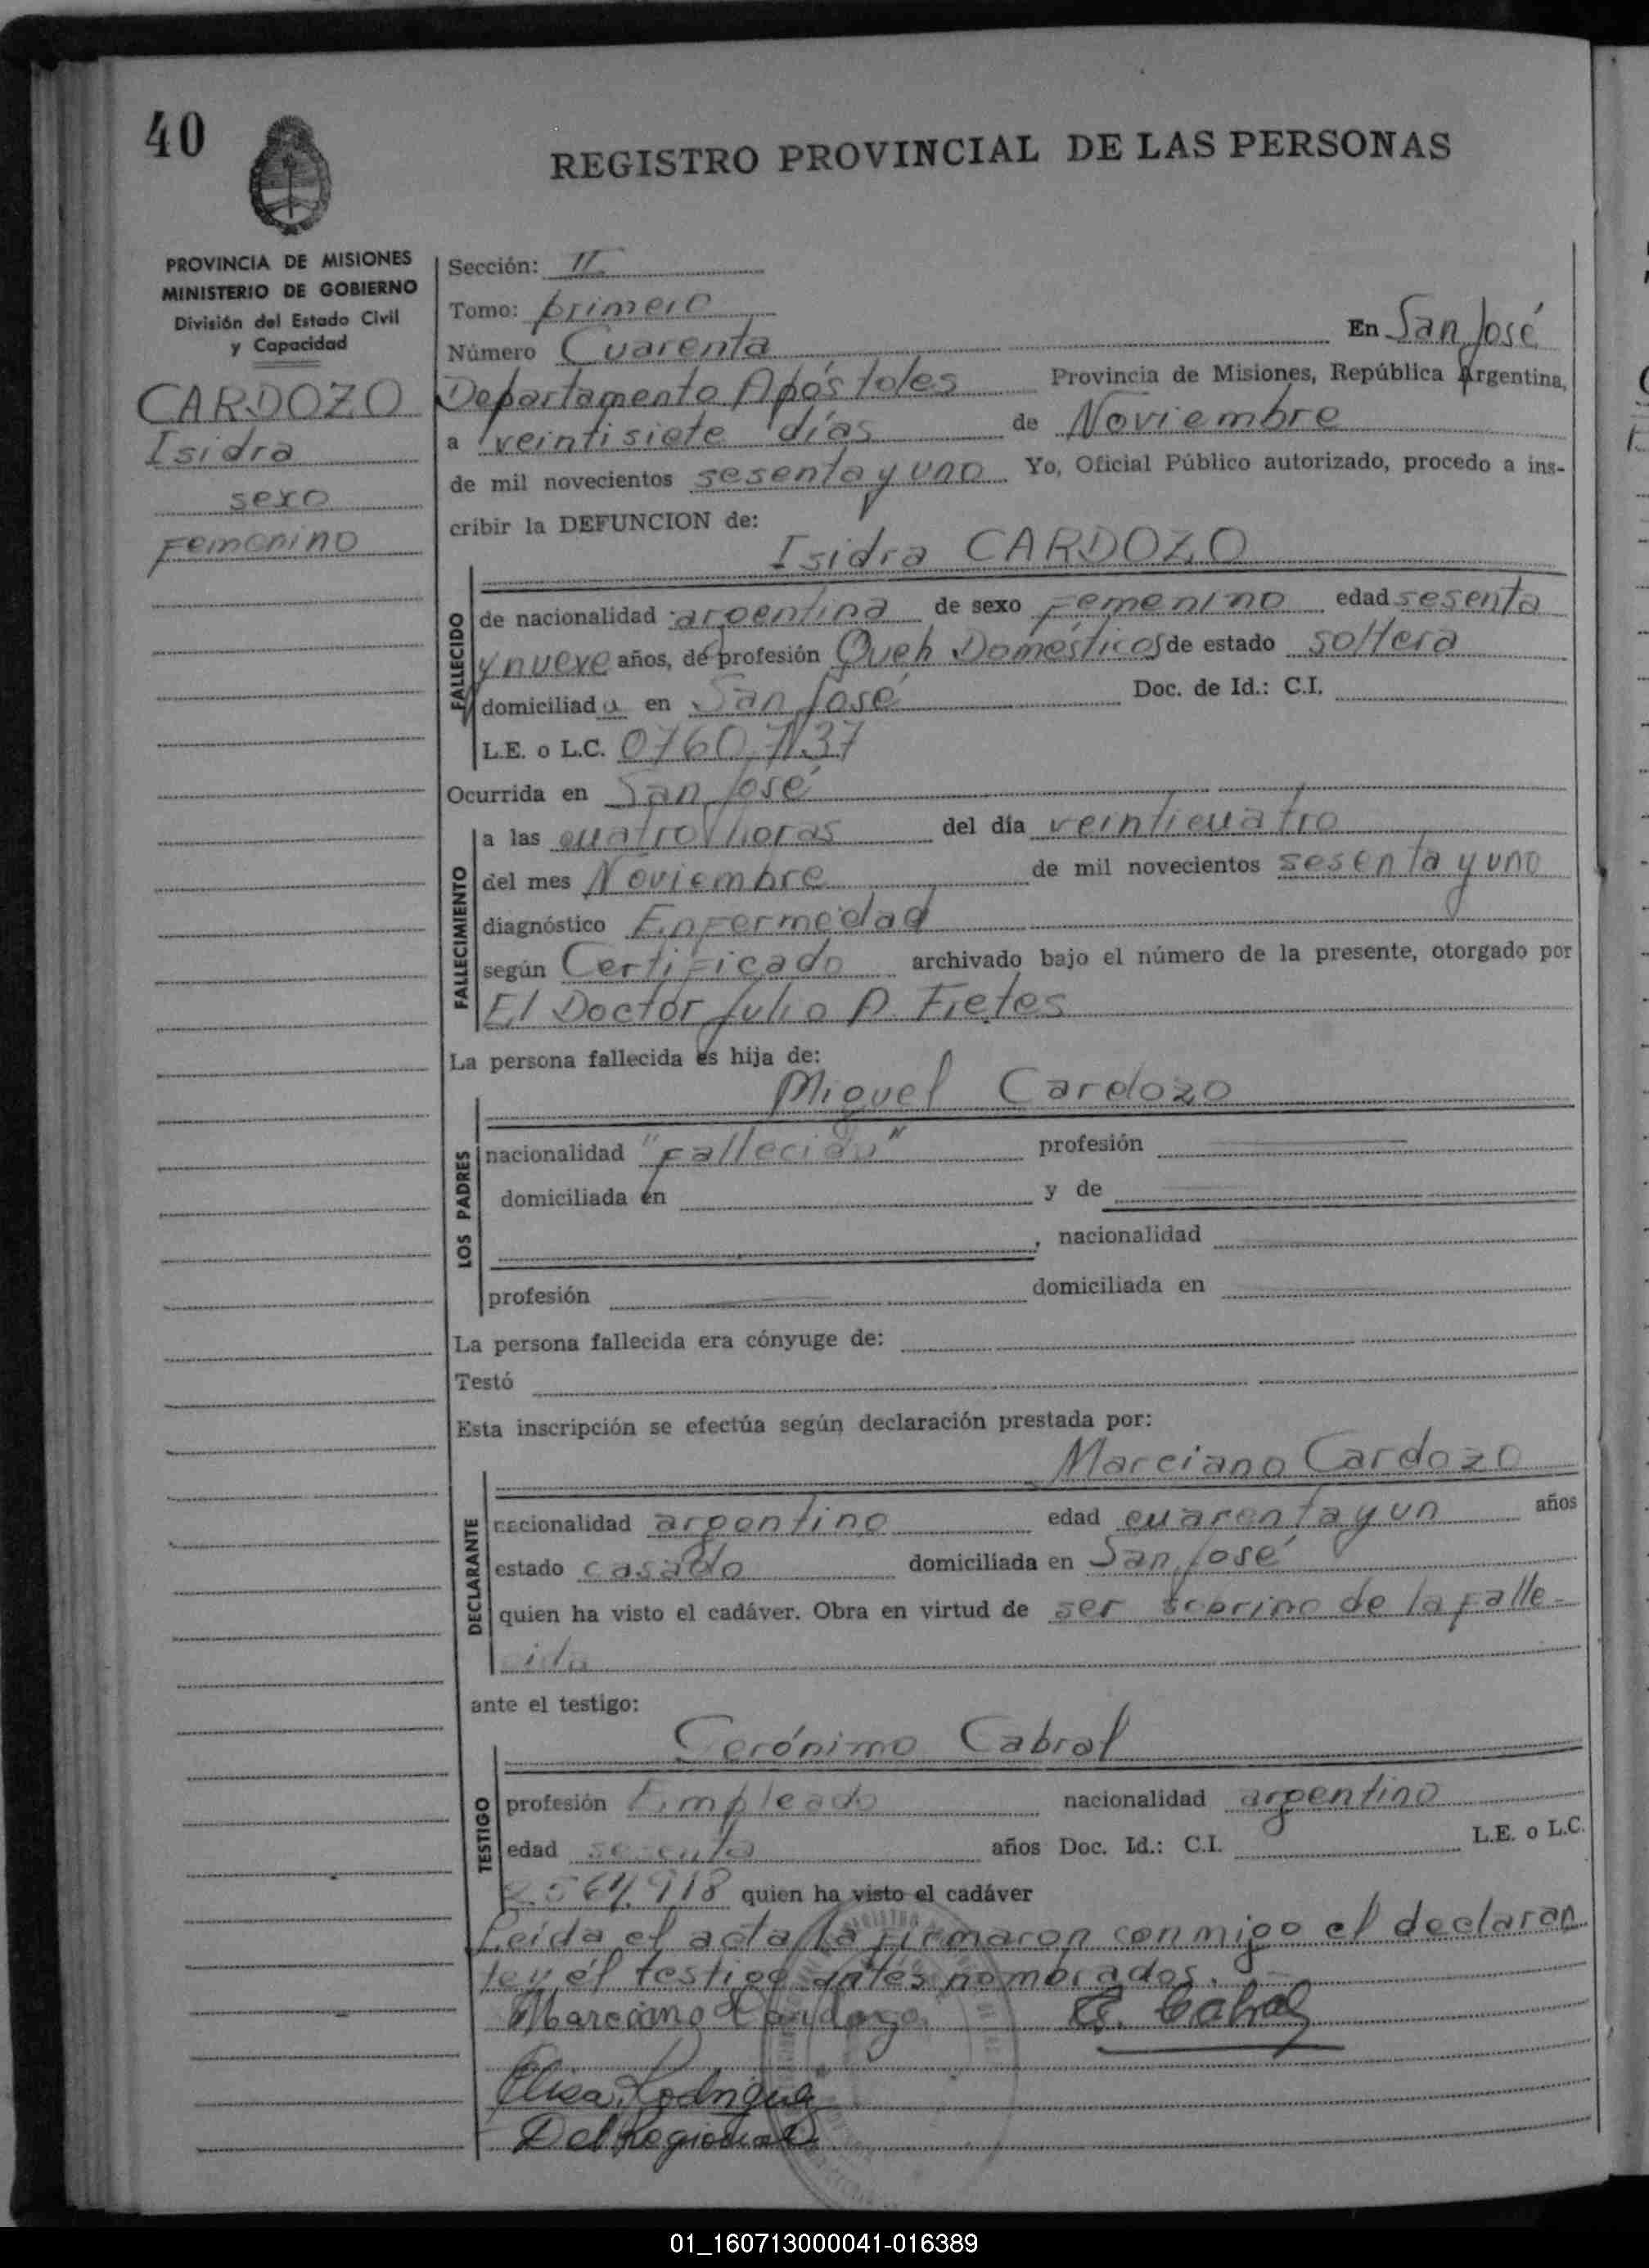 40
REGISTRO PROVINCIAL DE LAS PERSONAS
PROVINCIA DE MISIONES
MINISTERIO DE GOBIERNO
División del Estado Civil
y Capacidad
CARDOZO
Isidra
sexo
Femenino
Sección: II
Tomo: primero
Número Cuarenta En San José
Departamento Apóstoles Provincia de Misiones, República Argentina,
a veintisiete días de Noviembre
de mil novecientos sesenta y uno Yo, Oficial Público autorizado, procedo a ins-
cribir la DEFUNCION de:
Isidra CARDOZO
FALLECIDO
de nacionalidad argentina de sexo Femenino edad sesenta
y nueve años, de profesión Queh Domésticos de estado soltera
domiciliada en San José Doc. de Id.: C.I.
L.E. o L.C.
Ocurrida en San José
FALLECIMIENTO
a las cuatro horas del día veinticuatro
del mes Noviembre de mil novecientos sesenta y uno
diagnóstico Enfermedad
según Certificado archivado bajo el número de la presente, otorgado por
El Doctor Julio A. Fretes
La persona fallecida es hija de:
Miguel Cardozo
LOS PADRES
nacionalidad "Fallecido" profesión
domiciliada en y de
, nacionalidad
profesión domiciliada en
La persona fallecida era cónyuge de:
Testó
Esta inscripción se efectúa según declaración prestada por:
Marciano Cardozo
DECLARANTE
nacionalidad argentino edad cuarenta y un años
estado casado domiciliada en San José
quien ha visto el cadáver. Obra en virtud de ser sobrino de la falle-
cida
ante el testigo:
Gerónimo Cabral
TESTIGO
profesión Empleado nacionalidad argentino
edad años Doc. Id.: C.I. L.E. o L.C.
2.564.918 quien ha visto el cadáver
Leída el acta la firmaron conmigo el declaran
te y el testigo antes nombrados.
Marciano Cardozo G. Cabral
Elisa Rodriguez
Del Regional
01_160713000041-016389